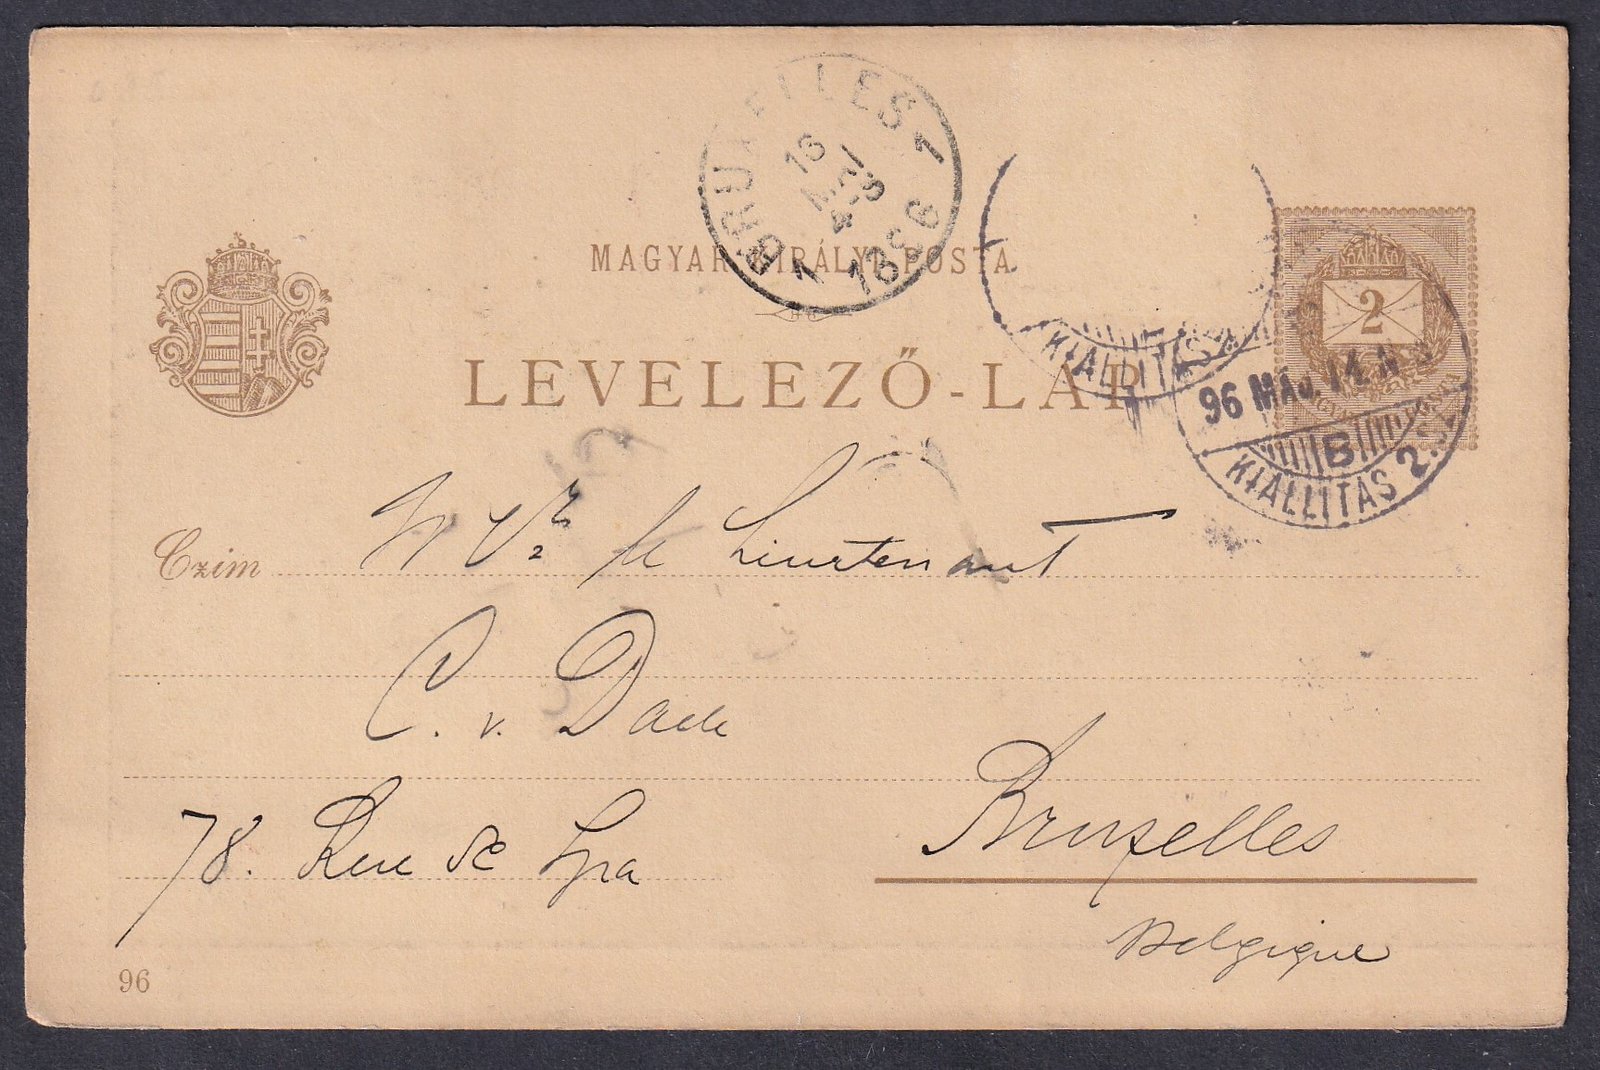 BRUXELLES 1
16 MAI
1896
MAGYAR KIRÁLYI POSTA
LEVELEZŐ-LAP
2
KIÁLLITÁS
96 MÁJ 14 N
B
KIÁLLITÁS 2.SZ
Czim
Lieutenant
C. v.
78. Rue de Spa
Bruxelles
Belgique
96